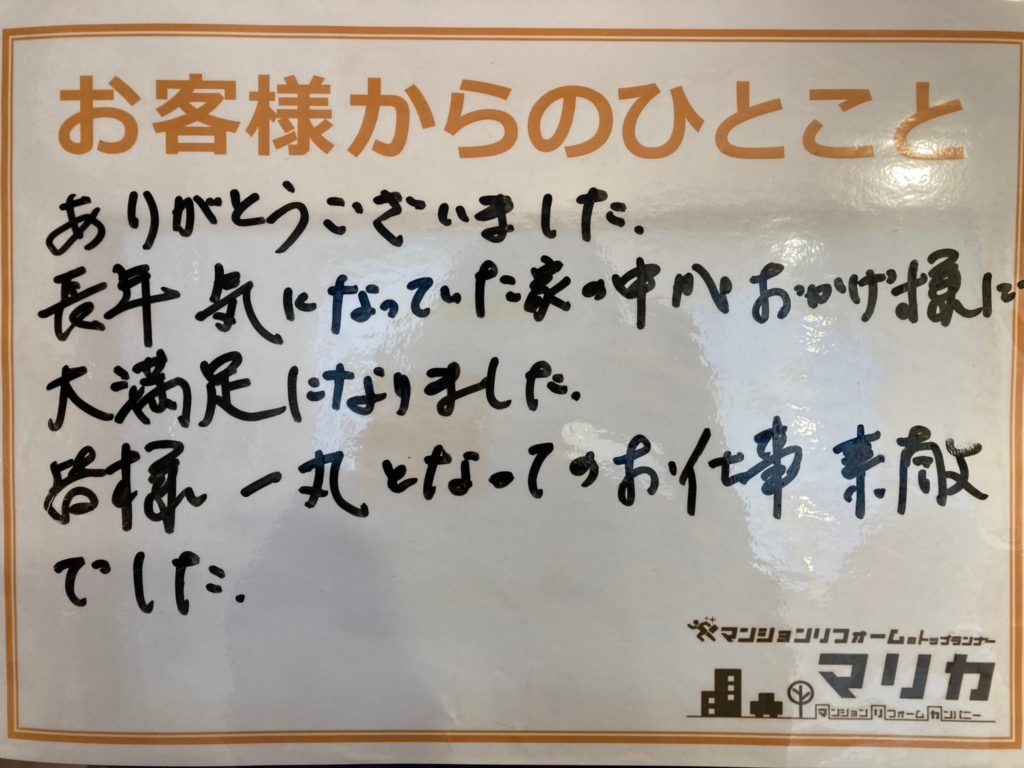 お客様からのひとこと
ありがとうございました.
長年 気になっていた家の中が おかげ様にて
大満足になりました.
皆様 一丸となってのお仕事 素敵
でした.
マンションリフォームのトップランナー
マリカ
マンションリフォームカンパニー